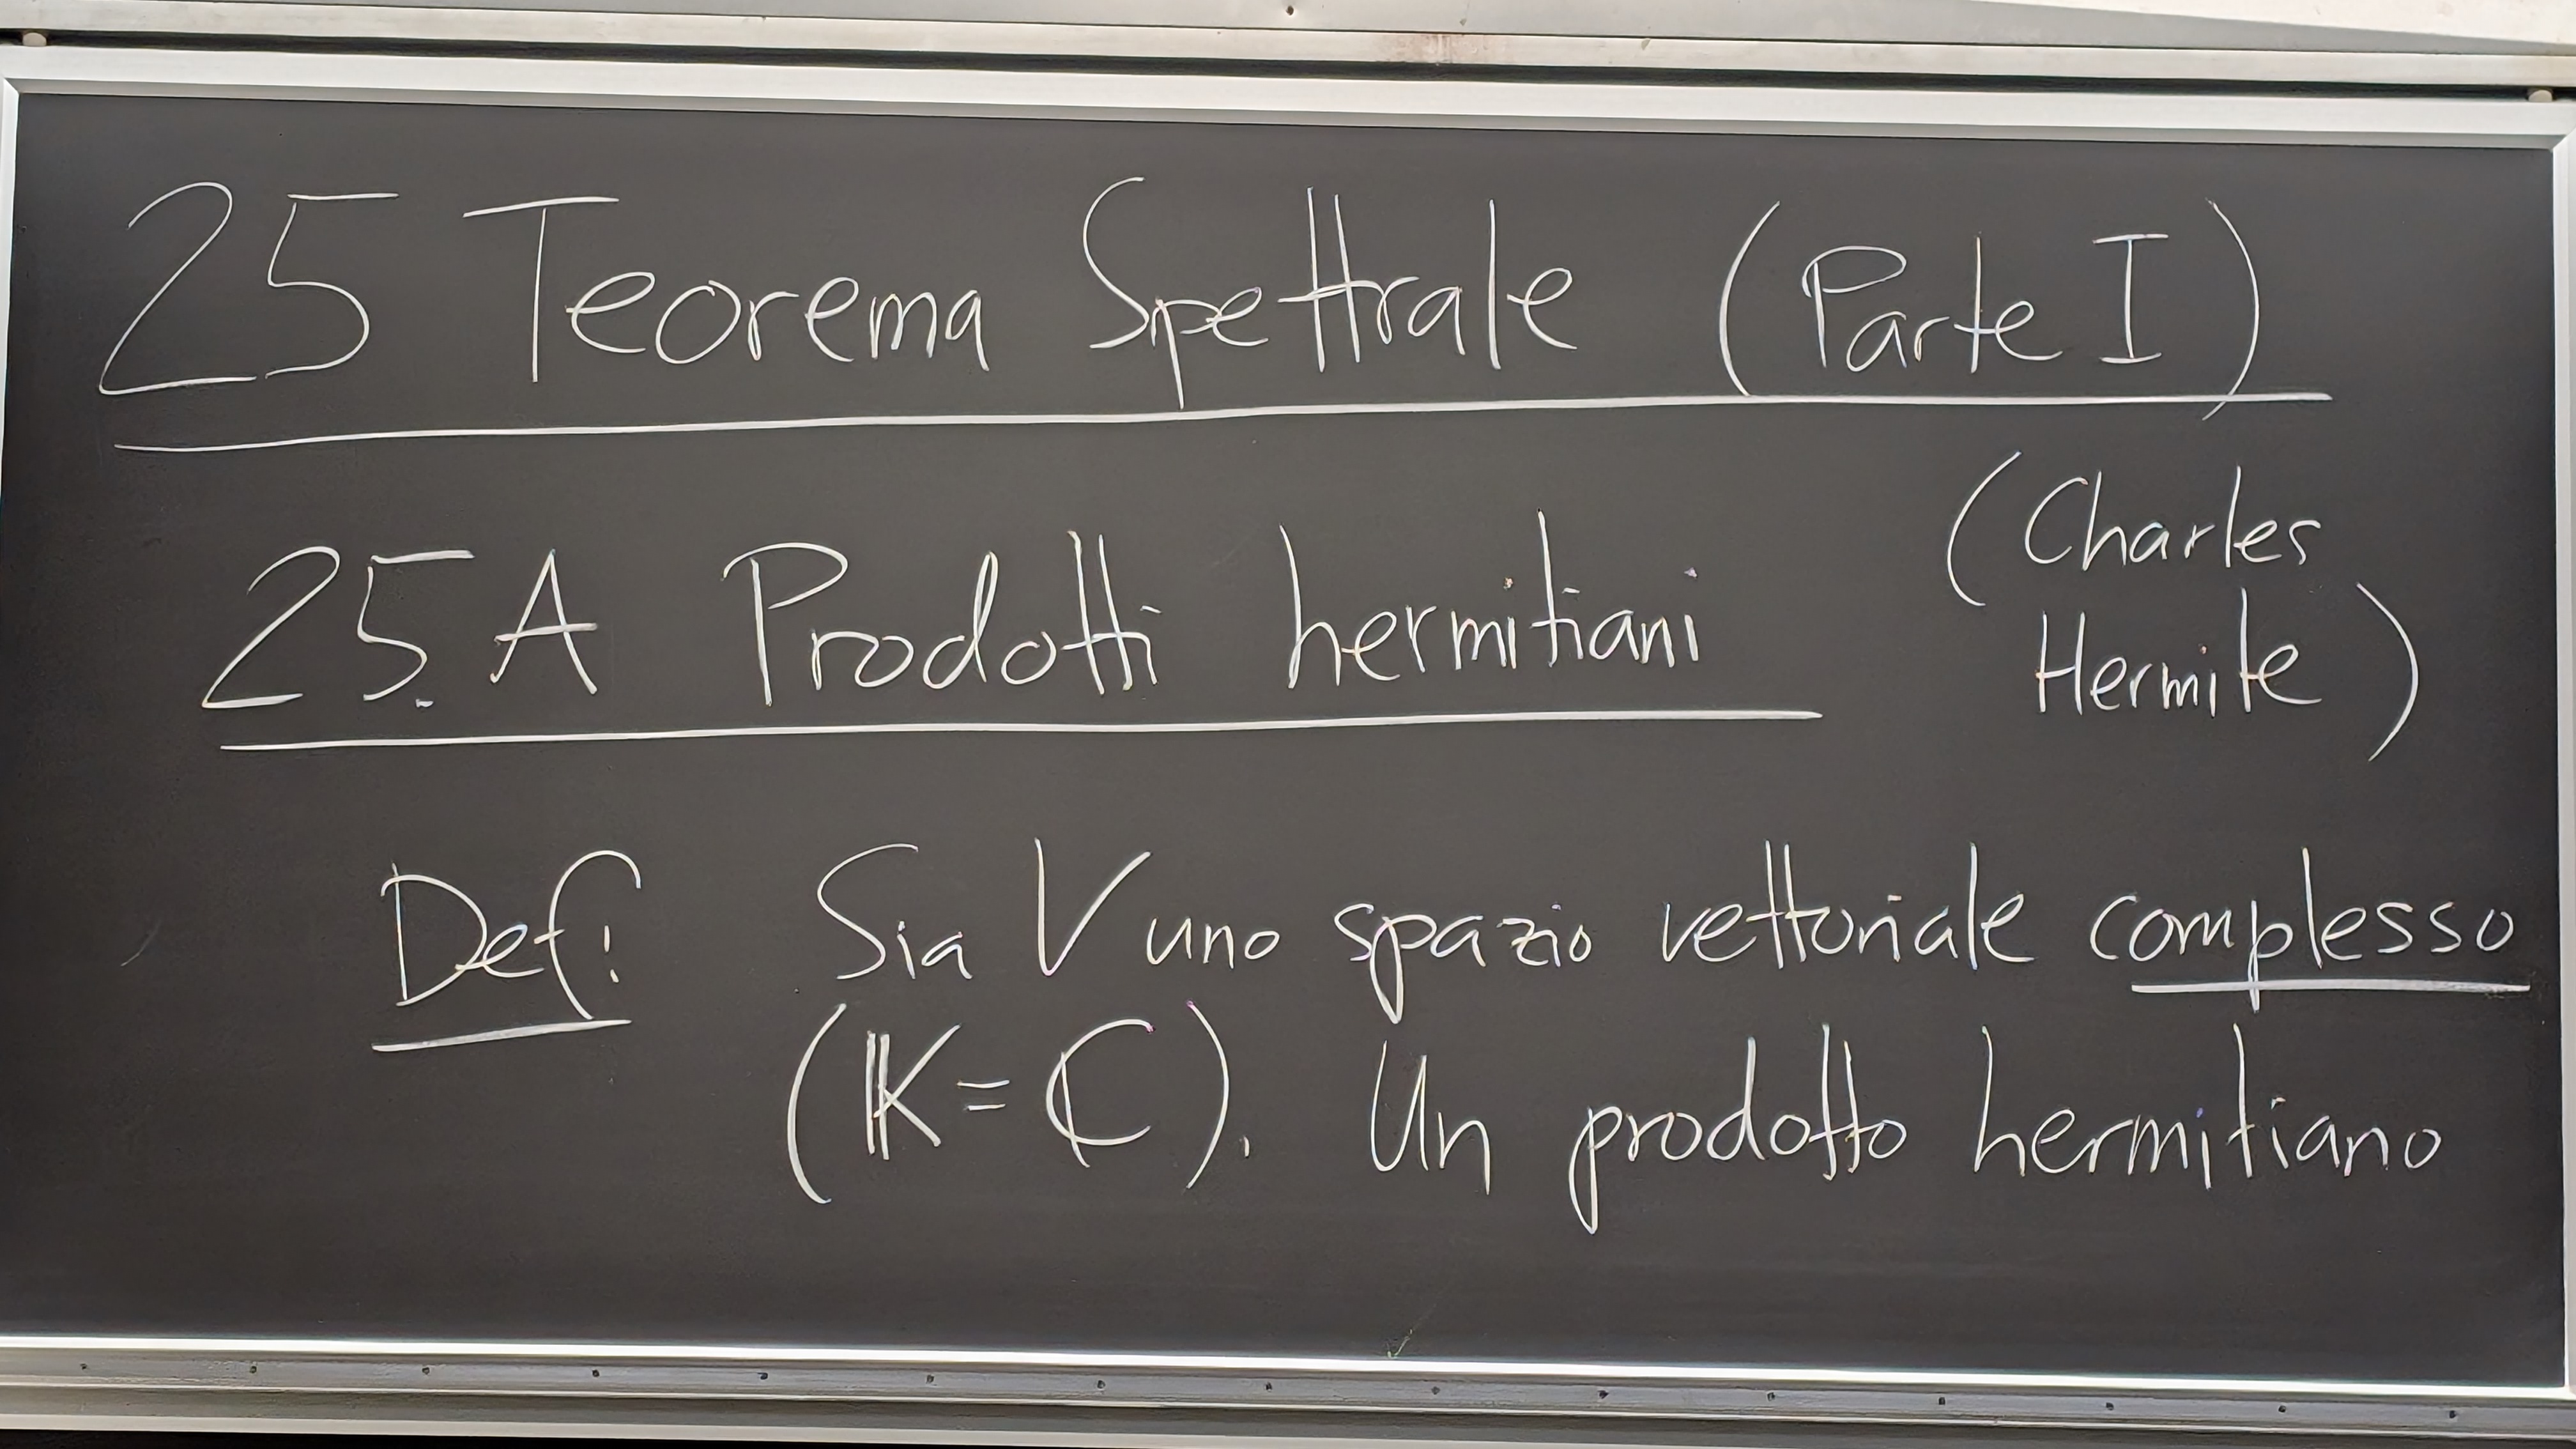 25 Teorema Spettrale (Parte I)
25.A Prodotti hermitiani
(Charles
Hermite)
Def: Sia V uno spazio vettoriale complesso
(𝕂 = ℂ). Un prodotto hermitiano